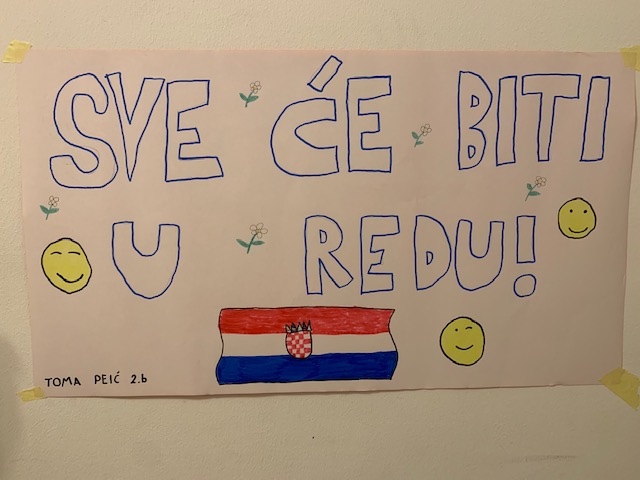 SVE ĆE BITI
U REDU!
TOMA PEIĆ 2.b